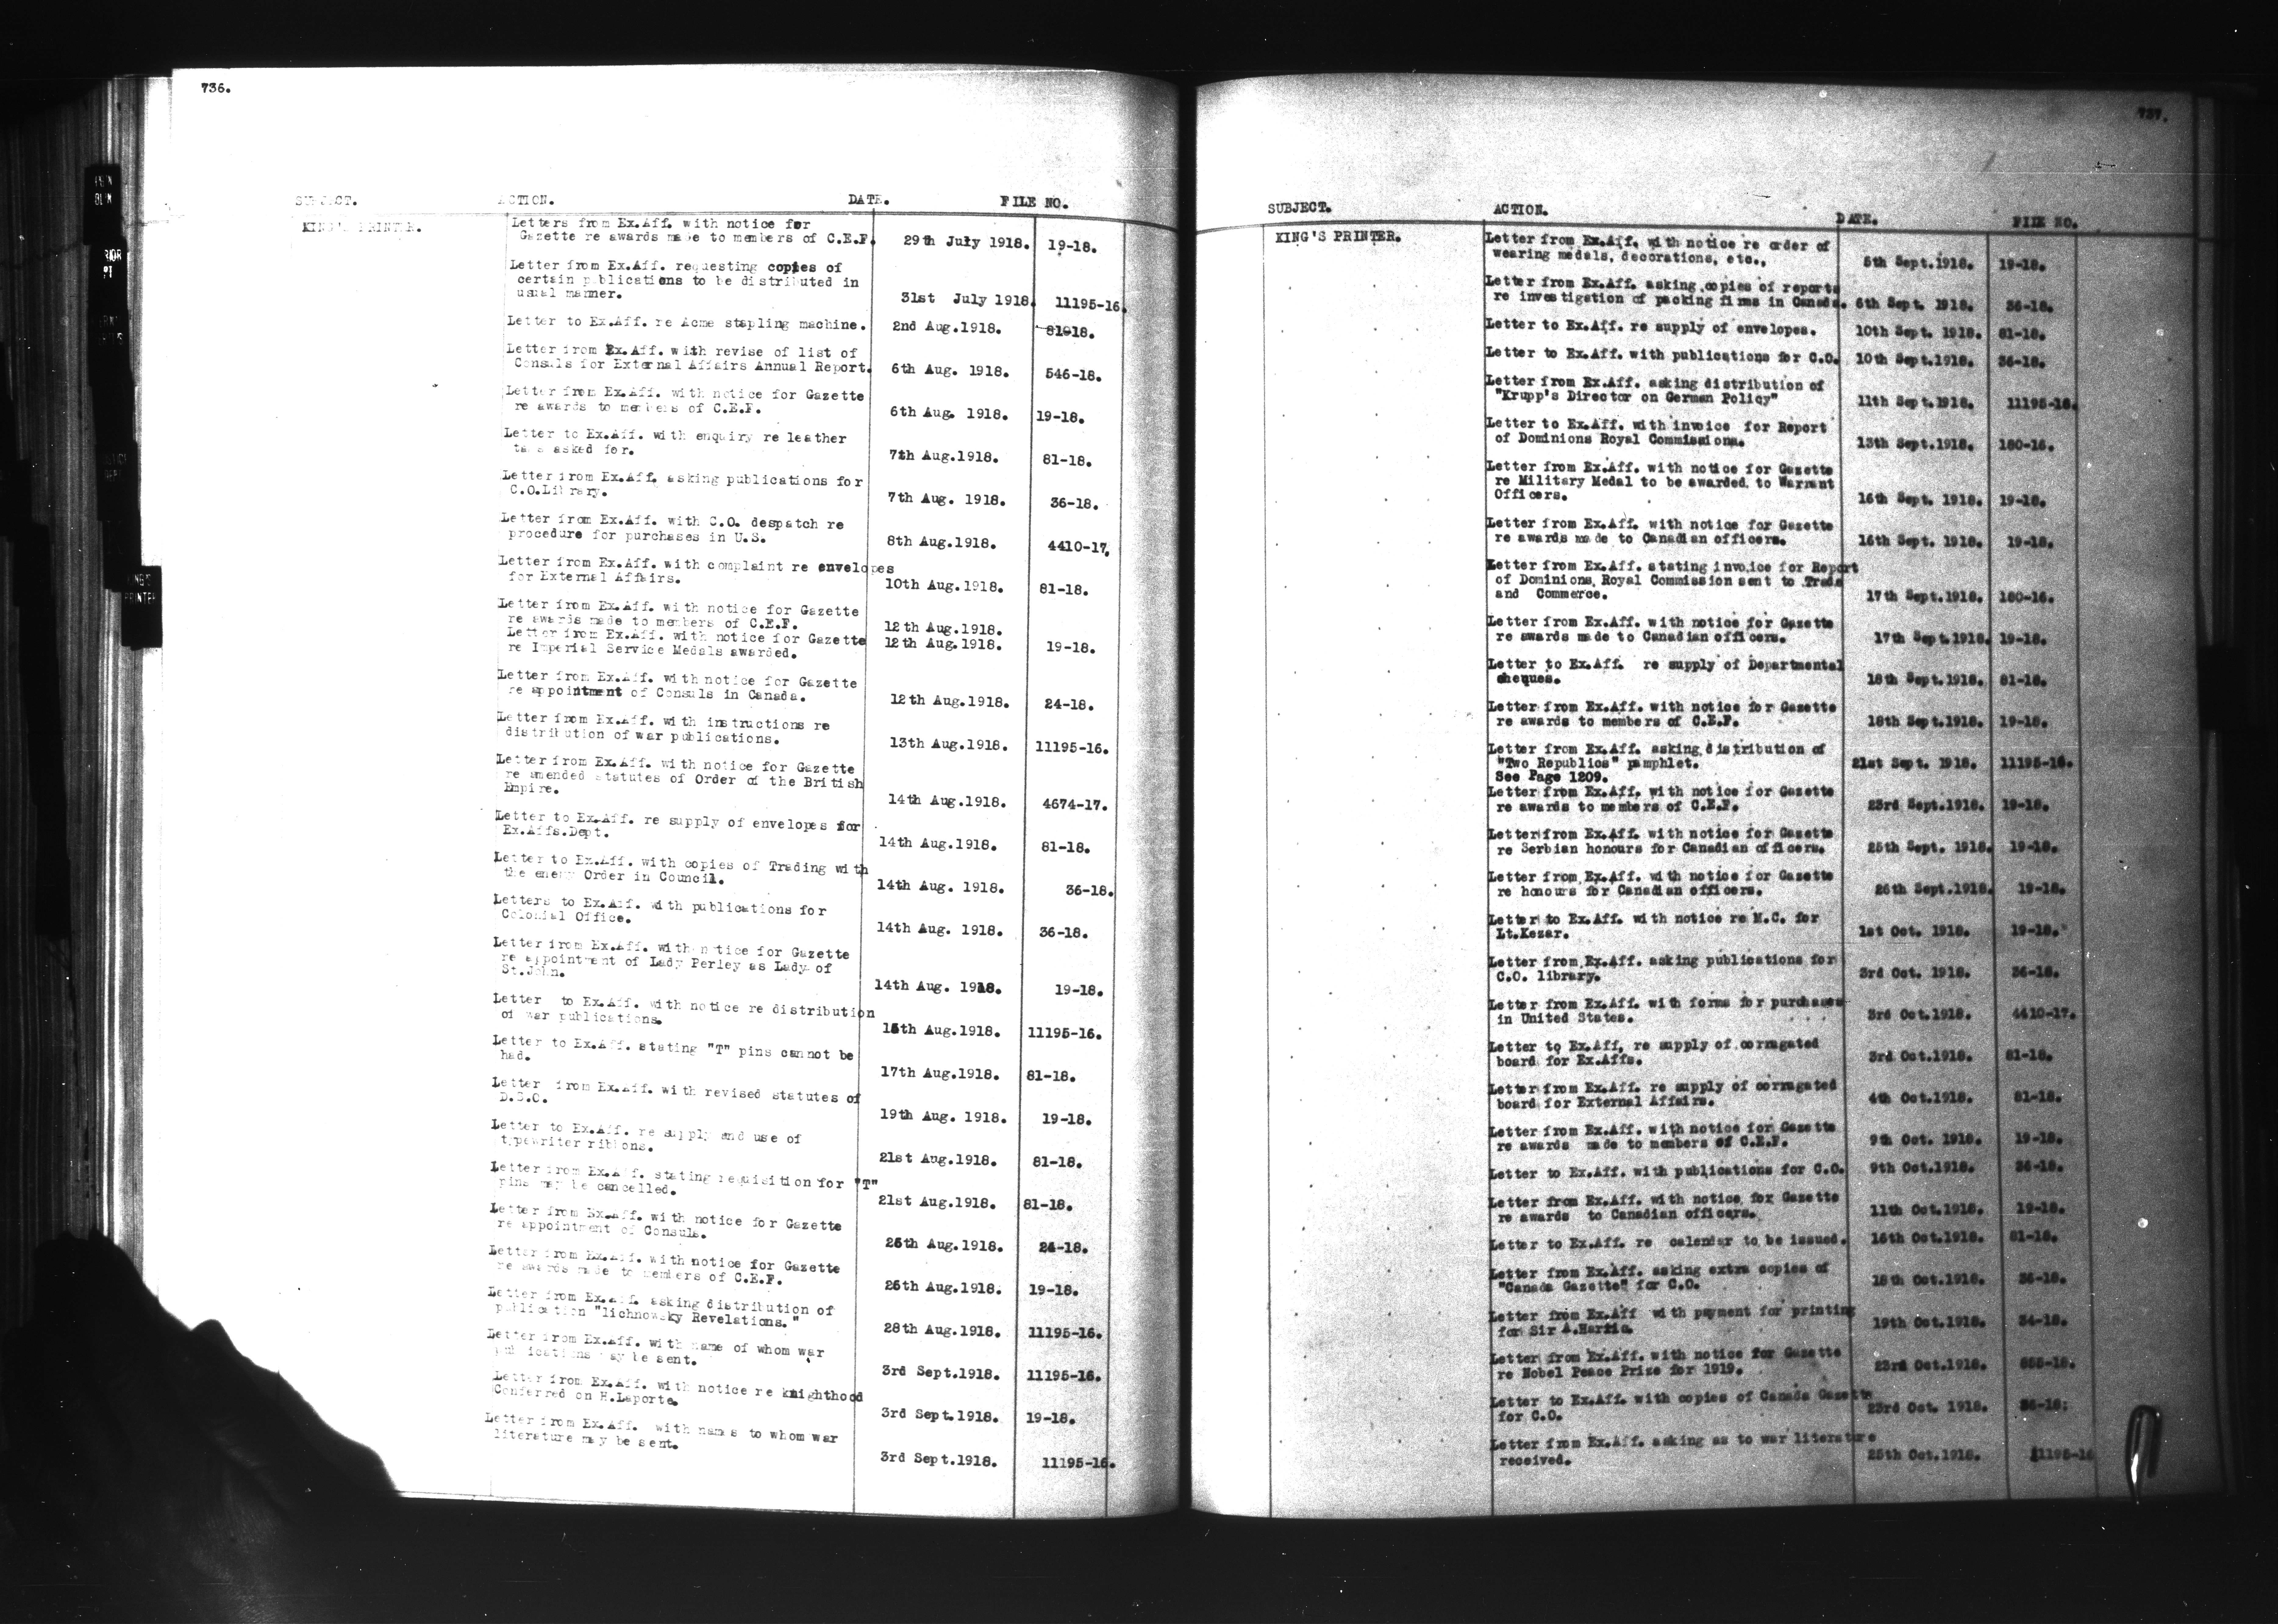 736.
SUBJECT. ACTION. DATE. FILE NO.
KING'S PRINTER. Letters from Ex.Aff. with notice for
Gazette re awards made to members of C.E.F. 29th July 1918. 19-18.
Letter from Ex.Aff. requesting copies of
certain publications to be distributed in
usual manner. 31st July 1918. 11195-16.
Letter to Ex.Aff. re Acme stapling machine. 2nd Aug.1918. 81-18.
Letter from Ex.Aff. with revise of list of
Consuls for External Affairs Annual Report. 6th Aug. 1918. 546-18.
Letter from Ex.Aff. with notice for Gazette
re awards to members of C.E.F. 6th Aug. 1918. 19-18.
Letter to Ex.Aff. with enquiry re leather
asked for. 7th Aug.1918. 81-18.
Letter from Ex.Aff. asking publications for
C.O.Library. 7th Aug. 1918. 36-18.
Letter from Ex.Aff. with C.O. despatch re
procedure for purchases in U.S. 8th Aug.1918. 4410-17.
Letter from Ex.Aff. with complaint re envelopes
for External Affairs. 10th Aug.1918. 81-18.
Letter from Ex.Aff. with notice for Gazette
re awards made to members of C.E.F. 12th Aug.1918.
Letter from Ex.Aff. with notice for Gazette 12th Aug.1918. 19-18.
re Imperial Service Medals awarded.
Letter from Ex.Aff. with notice for Gazette
re appointment of Consuls in Canada. 12th Aug.1918. 24-18.
Letter from Ex.Aff. with instructions re
distribution of war publications. 13th Aug.1918. 11195-16.
Letter from Ex.Aff. with notice for Gazette
re amended statutes of Order of the British
Empire. 14th Aug.1918. 4674-17.
Letter to Ex.Aff. re supply of envelopes for
Ex.Affs.Dept. 14th Aug.1918. 81-18.
Letter to Ex.Aff. with copies of Trading with
the enemy Order in Council. 14th Aug. 1918. 36-18.
Letters to Ex.Aff. with publications for
Colonial Office. 14th Aug. 1918. 36-18.
Letter from Ex.Aff. with notice for Gazette
re appointment of Lady Perley as Lady of
St.John. 14th Aug. 1918. 19-18.
Letter to Ex.Aff. with notice re distribution
of war publications. 15th Aug.1918. 11195-16.
Letter to Ex.Aff. stating "T" pins cannot be
had. 17th Aug.1918. 81-18.
Letter from Ex.Aff. with revised statutes of
D.S.O. 19th Aug. 1918. 19-18.
Letter to Ex.Aff. re supply and use of
typewriter ribbons. 21st Aug.1918. 81-18.
Letter from Ex.Aff. stating requisition for "T"
pins may be cancelled. 21st Aug.1918. 81-18.
Letter from Ex.Aff. with notice for Gazette
re appointment of Consuls. 26th Aug.1918. 24-18.
Letter from Ex.Aff. with notice for Gazette
re awards made to members of C.E.F. 26th Aug.1918. 19-18.
Letter from Ex.Aff. asking distribution of
publication "lichnowsky Revelations." 28th Aug.1918. 11195-16.
Letter from Ex.Aff. with name of whom war
publications may be sent. 3rd Sept.1918. 11195-16.
Letter from Ex.Aff. with notice re knighthood
Conferred on H.Laporte. 3rd Sept.1918. 19-18.
Letter from Ex.Aff. with names to whom war
literature may be sent. 3rd Sept.1918. 11195-16.
737.
SUBJECT. ACTION. DATE. FILE NO.
KING'S PRINTER. Letter from Ex.Aff. with notice re order of
wearing medals, decorations, etc., 5th Sept.1918. 19-18.
Letter from Ex.Aff. asking copies of reports
re investigation of packing firms in Canada. 6th Sept. 1918. 36-18.
Letter to Ex.Aff. re supply of envelopes. 10th Sept. 1918. 81-18.
Letter to Ex.Aff. with publications for C.O. 10th Sept.1918. 36-18.
Letter from Ex.Aff. asking distribution of
"Krupp's Director on German Policy" 11th Sept.1918. 11195-16.
Letter to Ex.Aff. with invoice for Report
of Dominions Royal Commissions. 13th Sept.1918. 180-16.
Letter from Ex.Aff. with notice for Gazette
re Military Medal to be awarded to Warrant
Officers. 16th Sept. 1918. 19-18.
Letter from Ex.Aff. with notice for Gazette
re awards made to Canadian officers. 16th Sept. 1918. 19-18.
Letter from Ex.Aff. stating invoice for Report
of Dominions Royal Commission sent to Trade
and Commerce. 17th Sept.1918. 180-16.
Letter from Ex.Aff. with notice for Gazette
re awards made to Canadian officers. 17th Sept.1918. 19-18.
Letter to Ex.Aff. re supply of Departmental
cheques. 18th Sept.1918. 81-18.
Letter from Ex.Aff. with notice for Gazette
re awards to members of C.E.F. 18th Sept.1918. 19-18.
Letter from Ex.Aff. asking distribution of
"Two Republics" pamphlet. 21st Sept. 1918. 11195-16.
See Page 1209.
Letter from Ex.Aff. with notice for Gazette
re awards to members of C.E.F. 23rd Sept.1918. 19-18.
Letter from Ex.Aff. with notice for Gazette
re Serbian honours for Canadian officers. 25th Sept. 1918. 19-18.
Letter from Ex.Aff. with notice for Gazette
re honours for Canadian officers. 26th Sept.1918. 19-18.
Letter to Ex.Aff. with notice re M.C. for
Lt.Kezar. 1st Oct. 1918. 19-18.
Letter from Ex.Aff. asking publications for
C.O. library. 3rd Oct. 1918. 36-18.
Letter from Ex.Aff. with forms for purchases
in United States. 3rd Oct.1918. 4410-17.
Letter to Ex.Aff. re supply of corrugated
board for Ex.Affs. 3rd Oct.1918. 81-18.
Letter from Ex.Aff. re supply of corrugated
board for External Affairs. 4th Oct.1918. 81-18.
Letter from Ex.Aff. with notice for Gazette
re awards made to members of C.E.F. 9th Oct. 1918. 19-18.
Letter to Ex.Aff. with publications for C.O. 9th Oct.1918. 36-18.
Letter from Ex.Aff. with notice for Gazette
re awards to Canadian officers. 11th Oct.1918. 19-18.
Letter to Ex.Aff. re calendar to be issued. 16th Oct.1918. 81-18.
Letter from Ex.Aff. asking extra copies of
"Canada Gazette" for C.O. 18th Oct.1918. 36-18.
Letter from Ex.Aff with payment for printing
for Sir A.Harris. 19th Oct.1918. 34-18.
Letter from Ex.Aff. with notice for Gazette
re Nobel Peace Prize for 1919. 23rd Oct.1918.
Letter to Ex.Aff. with copies of Canada Gazette
for C.O. 23rd Oct. 1918. 36-18.
Letter from Ex.Aff. asking as to war literature
received. 25th Oct.1918. 11195-16